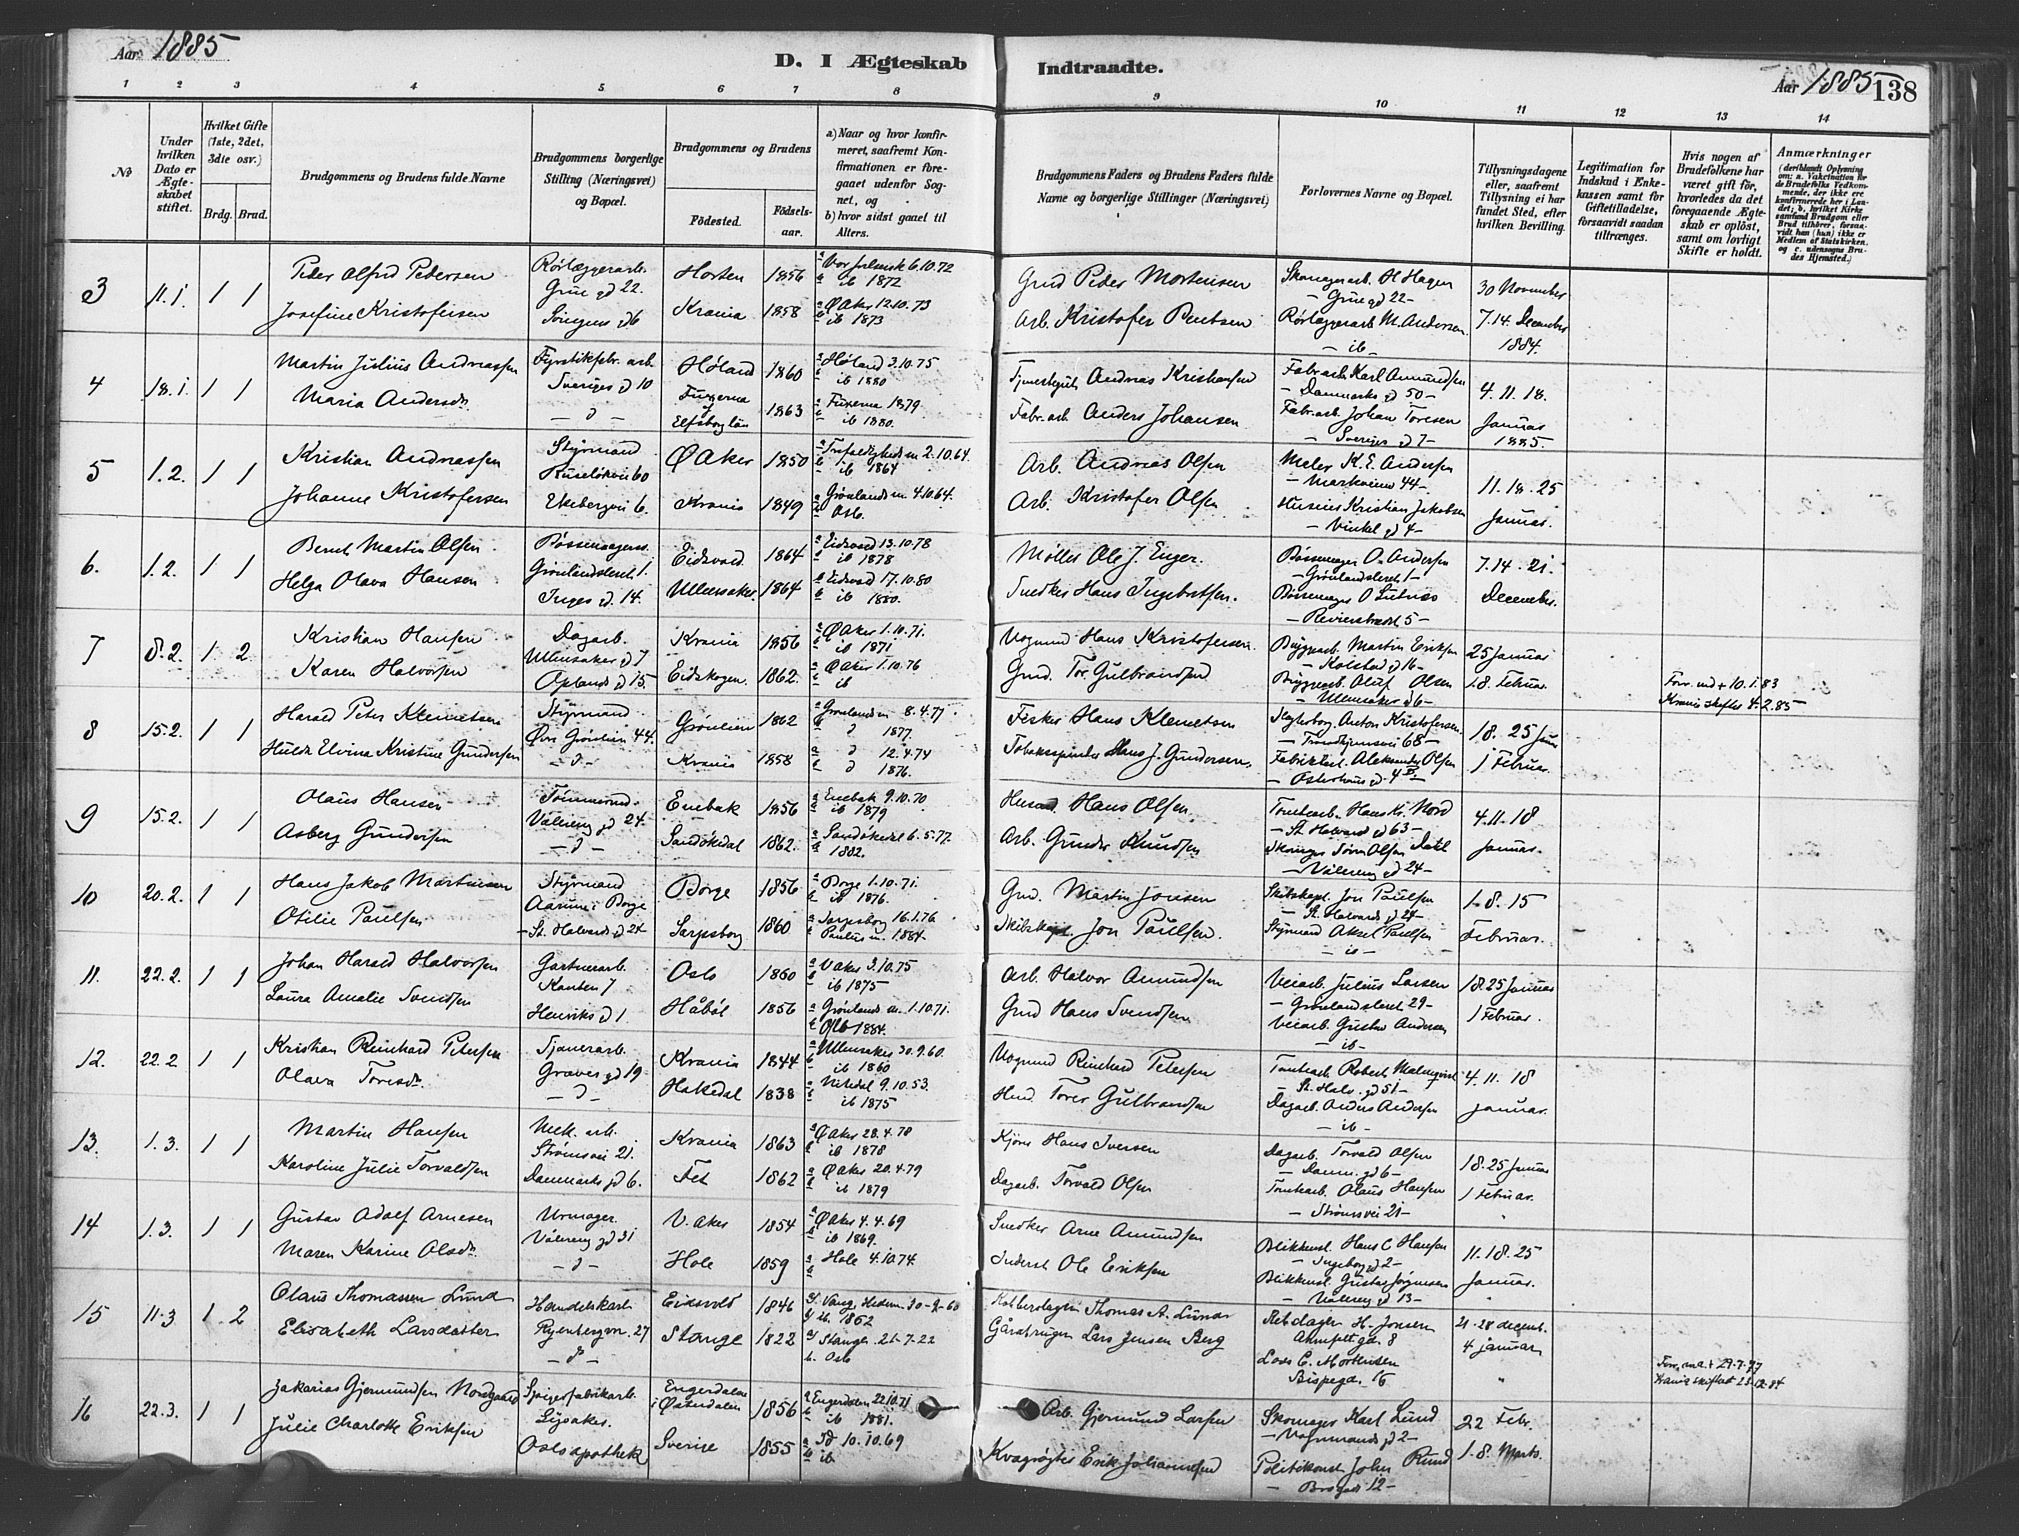 Aar 1885
D. I Ægteskab Indtraadte.
Aar 1885 138
1 2 3 4 5 6 7 8 9 10 11 12 13 14
No
Under hvilken Dato er Ægteskabet stiftet.
Hvilket Gifte (1ste, 2det, 3die osv.)
Brdg. Brud.
Brudgommens og Brudens fulde Navne
Brudgommens borgerlige Stilling (Næringsvei) og Bopæl.
Brudgommens og Brudens
Fødested. Fødselsaar.
a) Naar og hvor konfirmeret, saafremt Konfirmationen er foregaaet udenfor Sognet, og
b) hvor sidst gaaet til Alters.
Brudgommens Faders og Brudens Faders fulde Navne og borgerlige Stillinger (Næringsvei)
Forlovernes Navne og Bopæl.
Tillysningsdagene eller, saafremt Tillysning ei har fundet Sted, efter hvilken Bevilling.
Legitimation for Indskud i Enkekassen samt for Giftetilladelse, forsaavidt saadan tiltrænges.
Hvis nogen af Brudefolkene har været gift før, hvorledes da det foregaaende Ægteskab er opløst, samt om lovligt Skifte er holdt.
Anmærkninger
3 11.1. 1 1
Peder Alfred Pedersen Rørlæggerarb. Grue gd 22. Horten 1856 6.10.72 ib 1872
Josefine Kristofersen 6 Krania 1858 Ø Aker 12.10.73 ib 1873
Gmd Peder Mortensen Skomagerarb. H Hagen - Grue gd 22 - 30 November
Arb. Kristofer Rørlæggerarb. M. Andersen - ib - 7.14. December 1884.
4 18.1. 1 1
Martin Julius Andreassen Fyrstikfabr. arb Sveriges gd 10 Høland 1860 Høland 3.10.75 ib 1880
Maria Andersdr. - d - Fuxerna Elfsborg län 1863 Fuxerna 1879 ib 1880.
Andreas Kristiansen Fabrarb. Karl Amundsen - Danmarks gd 50 - 4.11.18.
Fabr. arb. Anders Johansen Fabr. arb. Johan Toresen - Sveriges gd 7 - Januar 1885.
5 1.2. 1 1
Kristian Andreassen Styrmand 60 Ø Aker 1850 Trefoldigheds m 2.10.64. ib 1864
Johanne Kristofersen Ekebergvei 6. Krania 1849 Grønlands m. 4.10.64. Oslo.
Arb. Andreas Olsen Maler K. E. Andersen - Markveien 44 - 11.18.25
Arb. Kristofer Olsen Huseier Kristian Jakobsen - Vinkel gd 4 - Januar.
6. 1.2. 1 1
Bernt Martin Olsen Bøssemagersv. Grønlandsleret 1. Eidsvold 1864 Eidsvold 13.10.78 ib 1878
Helga Olava Hansen Inges gd. 14. Ullensaker. 1864 Eidsvold 17.10.80 ib 1880.
Møller Ole J. Enger. Bøssemager O. Andersen - Grønlandsleret 1 - 7.14.21.
Snedker Hans Ingebretsen. Bøssemager O - 5 - December.
7 8.2. 1 2
Kristian Hansen Dagarb. Ullensaker gd 7 Krania 1856 Ø Aker 1.10.71. ib 1871
Karen Halvorsen Oplands gd 15. Eidskogen. 1862. Ø Aker 1.10.76 ib
Vognmd Hans Kristofersen. Bryggearb. Martin Eriksen - Kolstad gd 16 - 25 Januar
Gmd. Tor Gulbrandsen Bryggearb. Oluf Olsen - Ullensaker gd 6 - 1.8. Februar.
Forr. md + 10.1.83 Krania skifter 4.2.85
8 15.2. 1 1
Harald Peter Klemetsen Styrmand Øvre Grønlien 44. Grønlien 1862 Grønlands m 8.4.77. d 1877.
Hulda Elvina Kristine Gundersen - d - Krania 1858 d 12.4.74 d 1876.
Fisker Hans Klemetsen Anton Kristofersen - Trondhjemsvei 68 - 18.25 Januar
Tobaksspinder Hans J. Gundersen. Aleksander Olsen - Osterhaus gd. 4 B - 1 Februar
9 15.2. 1 1
Olaus Hansen Tømmermd. Vålereng gd 24. Enebak 1856 Enebak 9.10.70 ib 1879
Asberg Gundersen - d - Sandøkedal 1862. Sandøkedal 6.5.77. 1882.
Husmd Hans Olsen Tomtearb. Hans K. Nord - St. Halvard gd 63 - 4.11.18
Arb. Gunder Knudsen Skomager Tørn Olsen Dahl - Vålereng gd 24 - Januar.
10 20.2. 1 1
Hans Jakob Martinsen Styrmand Aarum i Borge Borge 1856 Borge 1.10.71. ib 1876.
Otilie Paulsen - St. Halvards gd 24 - Sarpsborg 1860 Sarpsborg 16.1.76. Paulus m. 1884.
Gmd. Martin Jonsen Skibskapt. Jon Paulsen - St. Halvards gd 24 - 1.8.15
Skibskapt Jon Paulsen. Styrmand Aksel Paulsen - ib - Februar.
11. 22.2. 1 1
Johan Harald Halvorsen Gartnerarb. Kanten 7 Oslo 1860 V Aker 3.10.75 ib 1875
Laura Amalie Svendsen Henriks gd 1 Håbøl 1856 Grønlands m. 1.10.71. Oslo 1884.
Arb. Halvor Amundsen Veiarb. Julius Larsen - Grønlandsleret 29 - 18.25 Januar
Gmd Hans Svendsen Veiarb. Gustav Andersen - ib - 1 Februar.
12. 22.2. 1 1
Kristian Reinhard Petersen Tjenerarb. Græver gd 19 Krania 1844 Ullensaker 30.9.60. ib 1860
Olava Toresdr. - d - Hakedal 1838 Nitedal 9.10.53. ib 1875
Vognmd Reinhard Petersen Tomtearb. Robert Malmqvist - St. Halv. gd 51 - 4.11.18
Husmd. Torer Gulbrandsen Dagarb. Anders Andersen - ib - Januar.
13. 1.3. 1 1
Martin Hansen Mek. arb. Strømsvei 21. Krania 1863 Ø Aker 28.4.78 ib 1878
Karoline Julie Torvaldsen Danmarks gd 6. Fet 1862 Ø Aker 20.4.79 ib 1879
Kjører Hans Iversen Dagarb. Torvald Olsen - Danm. gd 6 - 18.25 Januar
Dagarb. Torvald Olsen Tomtearb. Olaus Hansen - Strømsvei 21 - 1 Februar.
14 1.3. 1 1
Gustav Adolf Arnesen Urmager. Vålereng gd 31 V. Aker 1854 Ø Aker 4.4.69 ib 1869.
Maren Karine Olsdr. - d - Hole 1859 Hole 4.10.74.
Snedker Arne Amundsen Blikkensl. Hans C Hansen - Ingeborg gd 2 - 11.18.25
Inderst Ole Eriksen Blikkensl. Gustav Jørgensen - Vålereng gd 13 - Januar.
15 11.3 1 2
Olaus Thomassen Lund Handelskarl Ryenbergvn. 27 Eidsvold 1846 Vang, Hedem. 30-9-60 ib. 1862
Elisabeth Larsdatter - d - Stange 1822 Stange 21-7-22 Oslo
Thomas A. Lund H. Jonsen gd. 8 21-28 decemb.
Gårdbruger Lars Jensen Berg C. Mortensen Bispegd. 16 4 januar
Forr. m. + 29.7.77 Krania skiftet 23.12.84
16 22.3. 1 1
Zakarias Gjermundsen Nordgaard Spigerfabrikarb. Ligåaker. Engerdalen i Østerdalen 1856 Engerdalen 22.10.71 ib 1881.
Julie Charlotte Eriksen Oslo apothek Sverige 1855 10.10.69 ib
Arb. Gjermund Larsen Skomager Karl Lund - Vognmands gd 2 - 22 Febr.
Kvægrøgter Erik Johannesen Politikonst. John Rund - Brogade 12 - 1.8. Marts